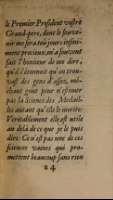 le Premier President vostre
Grand-pere, dont le souvenir
me sera toûjours
precieux, m'a souvent
fait l'honneur de me dire,
qu'il s'étonnoit qu'on trouvast
des gens d'assez méchant
goût pour n'estimer
pas la science des Medailles
autant qu'elle le merite.
Veritablement elle est utile
au delà de ce que je le puis
dire. Ce n'est pas une de ces
sciences vaines qui promettent
beaucoup sans rien